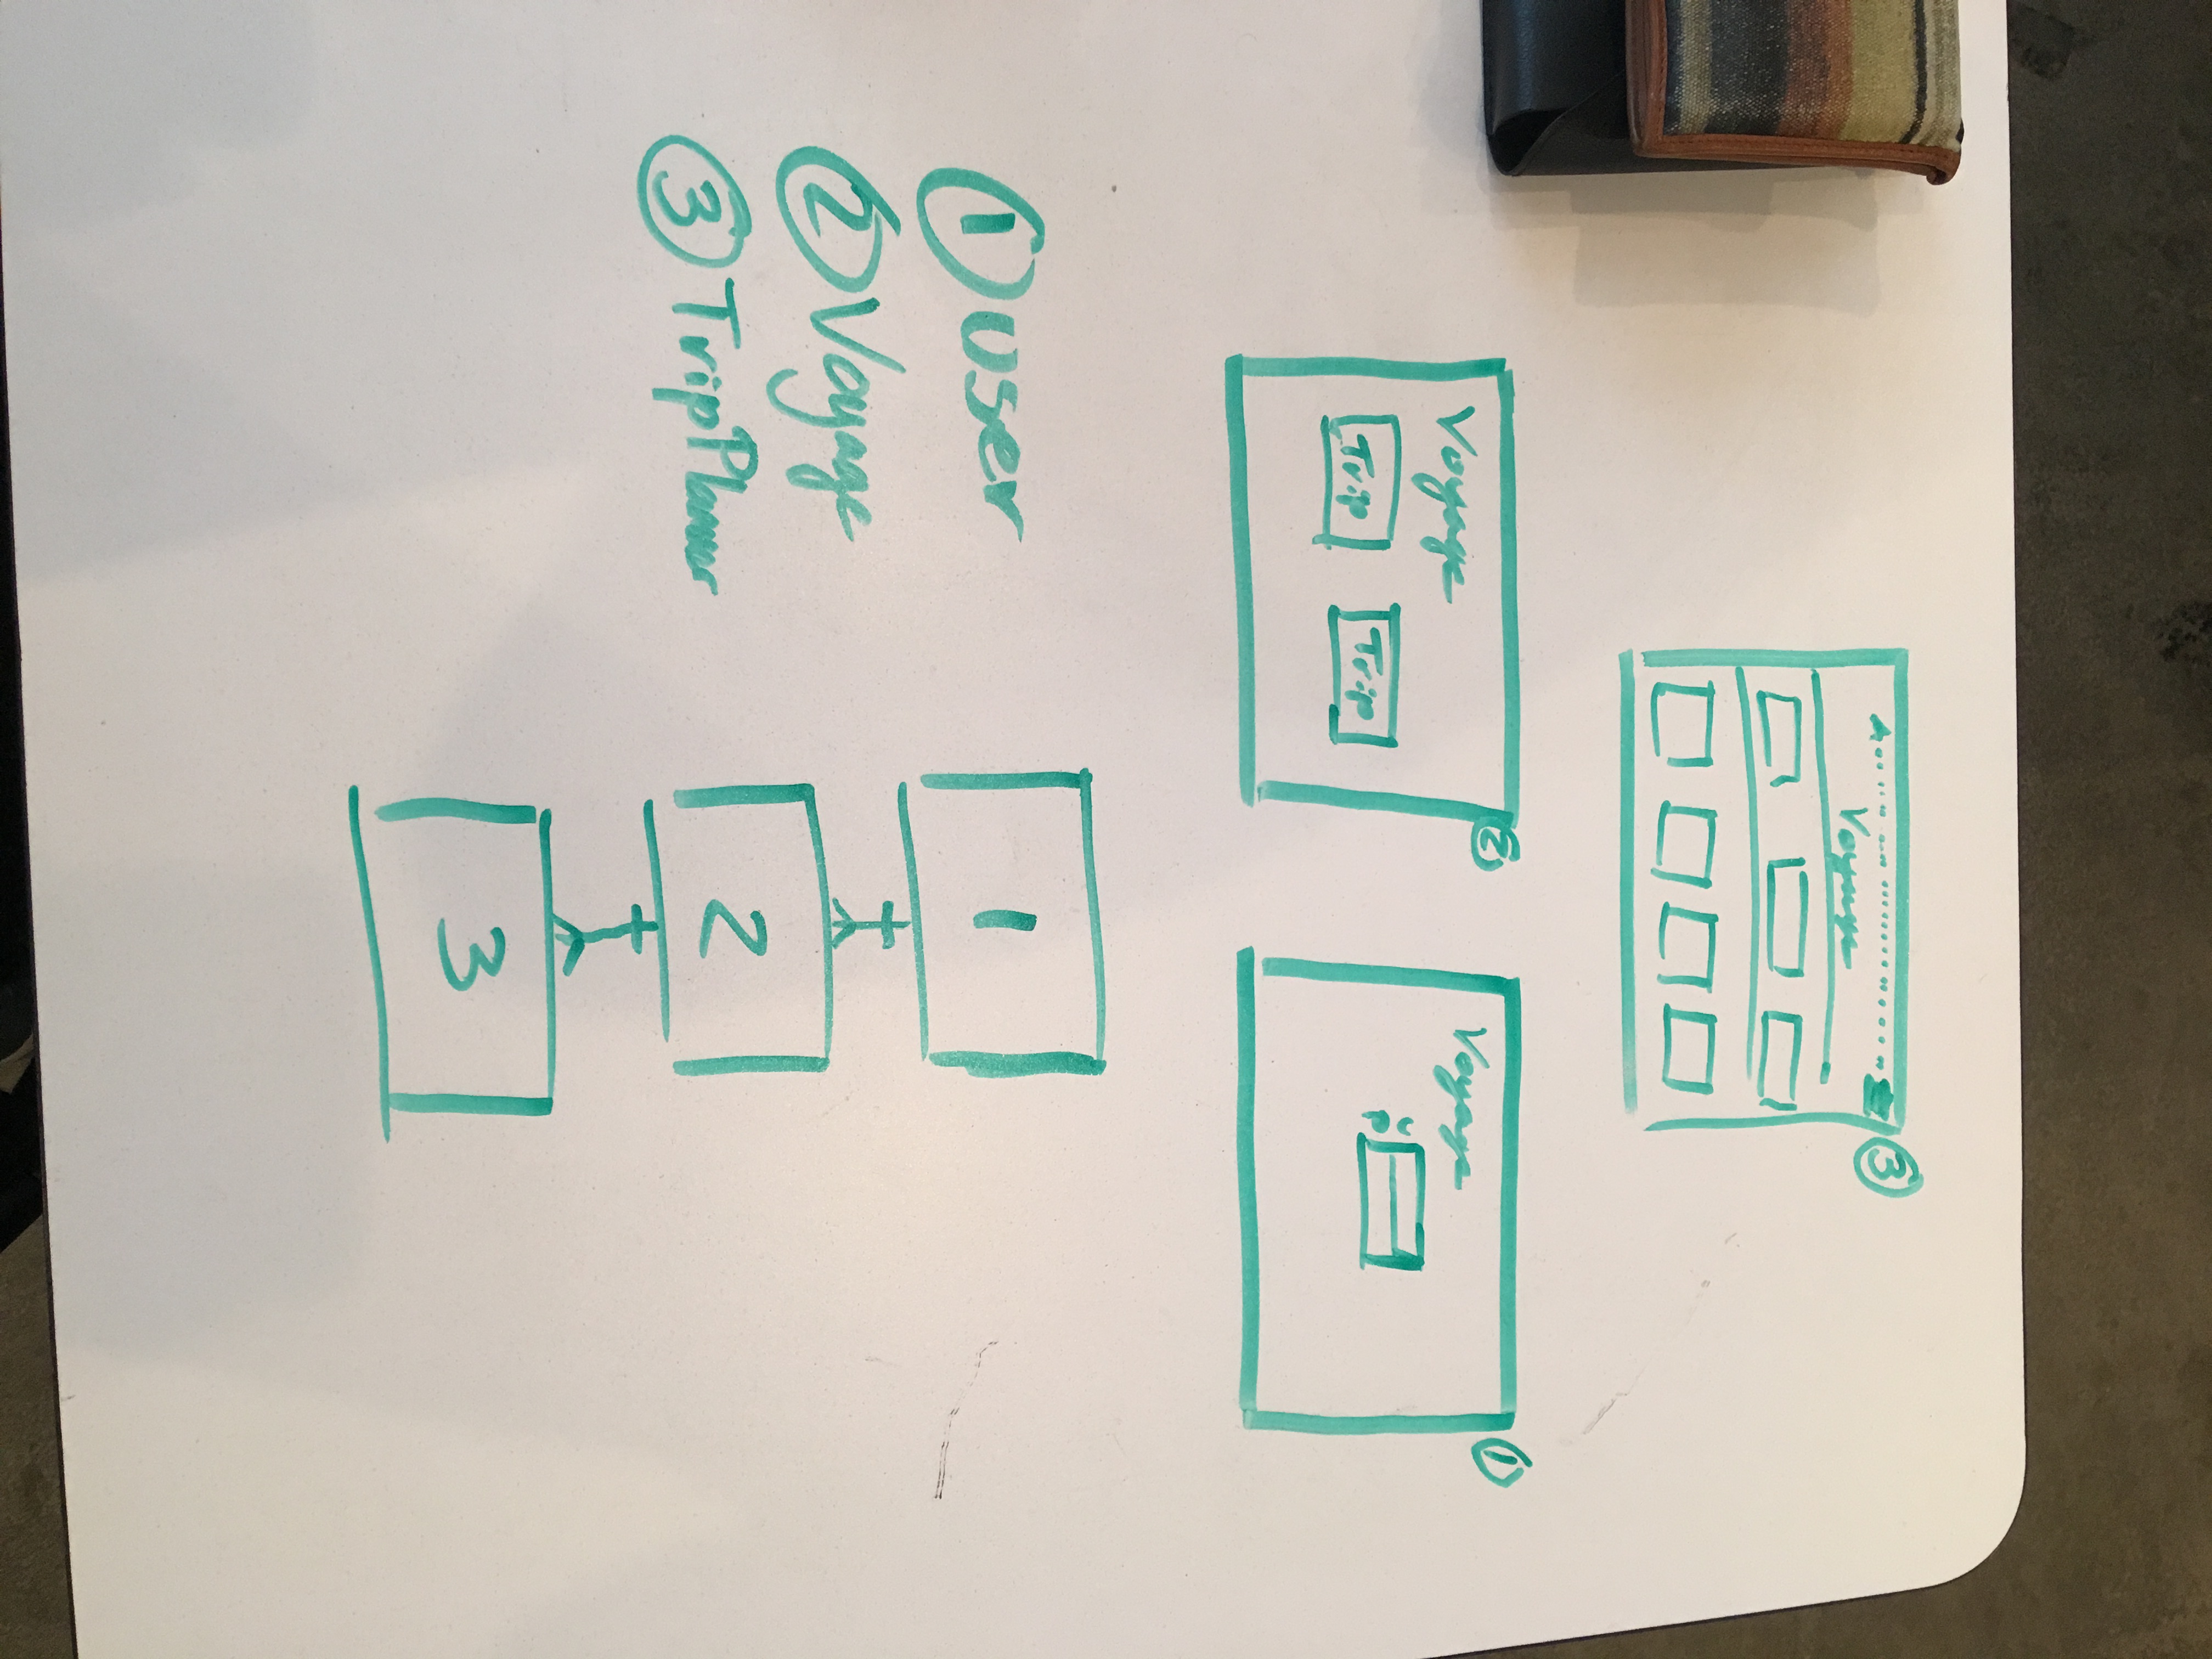 3
Voyage
2
Voyage
Trip Trip
1
Voyage
U
P
1 user
2 Voyage
3 TripPlanner
1
2
3